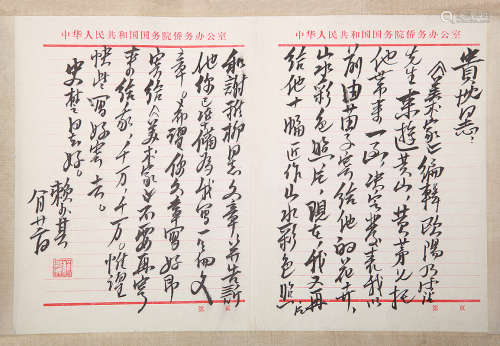 中华人民共和国国务院侨务办公室
贵忱同志：
《美术家》编辑欧阳乃沾
先生来游黄山，黄茅兄托
他带来一函决定发表我以
前由苗子寄给他的花卉，
山水彩色照片，现在，我又再
给他十幅近作山水彩色照片
第 页
中华人民共和国国务院侨务办公室
和谢稚柳同志文章，并告诉
他你已准备为我写一篇文
章。希望你文章写好即
寄给《美术家》不要再寄
来给我，千万，千万。惟望
快些写好寄去。
好。
赖少其
八月廿
第 页